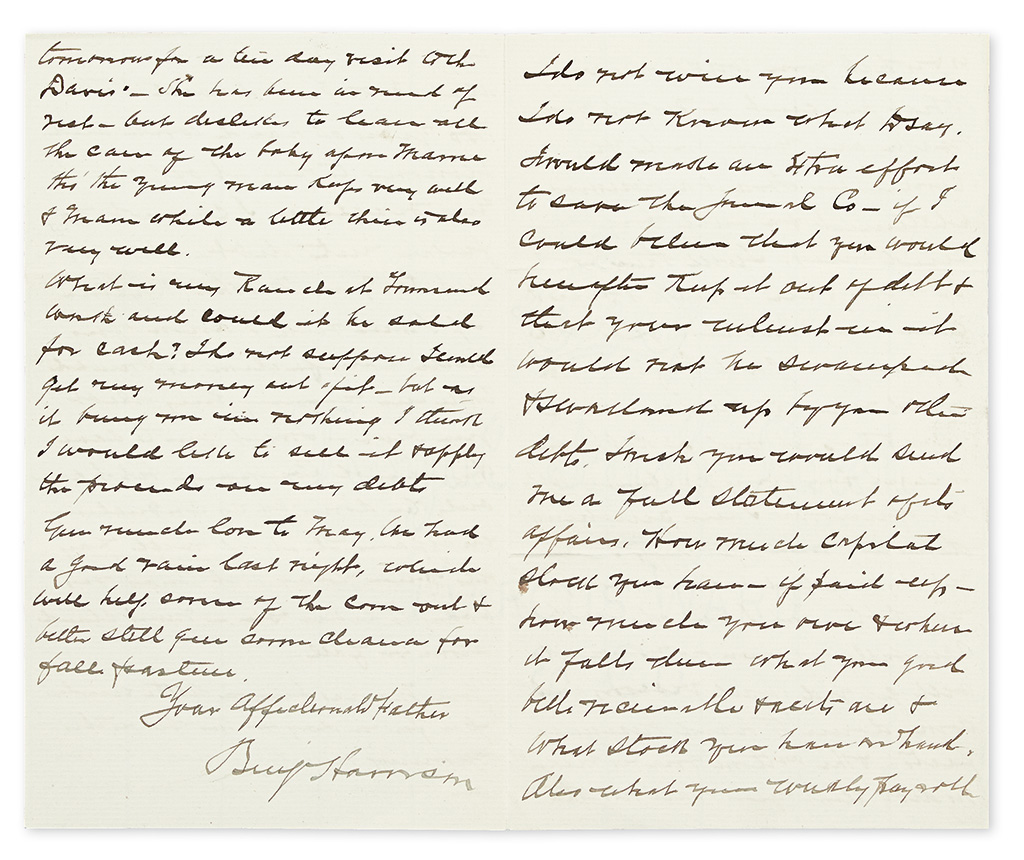 tomorrow for a ten day visit to the
Davis' — She has been in need of
rest — but dislikes to leave all
the care of the baby upon Mamie
tho' the young man keeps very well
& Mam while a little thin is also
very well.
What is my Ranch at Townsend
worth and could it be sold
for cash? I do not suppose I could
get my money out of it — but as
it brings me in nothing I think
I would like to sell it & apply
the proceeds on my debts
Give much love to May. We had
a good rain last night, which
will help some of the corn out &
better still give some chance for
fall pasture.
Your Affectionate Father
Benj Harrison
I do not wire you because
I do not know what to say.
I would make an extra effort
to save the Journal Co — if I
could believe that you would
hereafter keep it out of debt &
that your interest in it
would not be swamped
& swallowed up by your other
debts. I wish you would send
me a full statement of its
affairs. How much capital
stock you have — if paid up —
how much you owe & when
it falls due what your good
bills receivable & accts are &
what stock you have on hand.
Also what your weekly pay roll